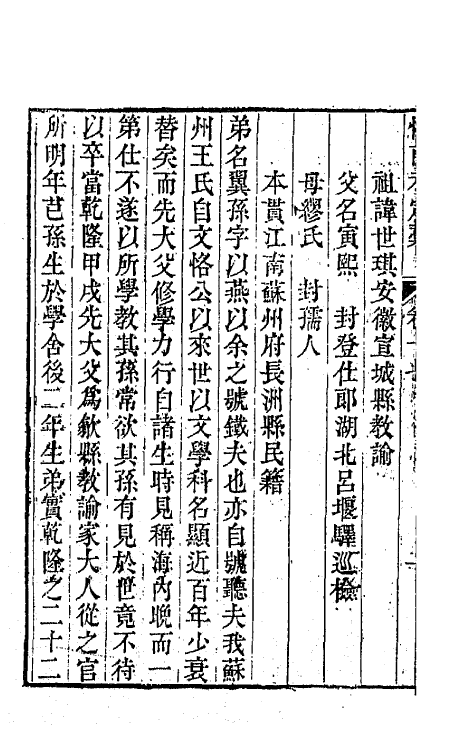 祖諱世琪安徽宣城縣教諭
父名寅熙　封登仕郎湖北呂堰驛巡檢
母繆氏　封孺人
本貫江南蘇州府長洲縣民籍
弟名翼孫字以燕以余之號鐵夫也亦自號聽夫我蘇
州王氏自文恪公以來世以文學科名顯近百年少衰
替矣而先大父修學力行自諸生時見稱海內晚而一
第仕不遂以所學教其孫常欲其孫有見於世竟不待
以卒當乾隆甲戌先大父爲歙縣教諭家大人從之官
所明年芑孫生於學舍後二年生弟實乾隆之二十二